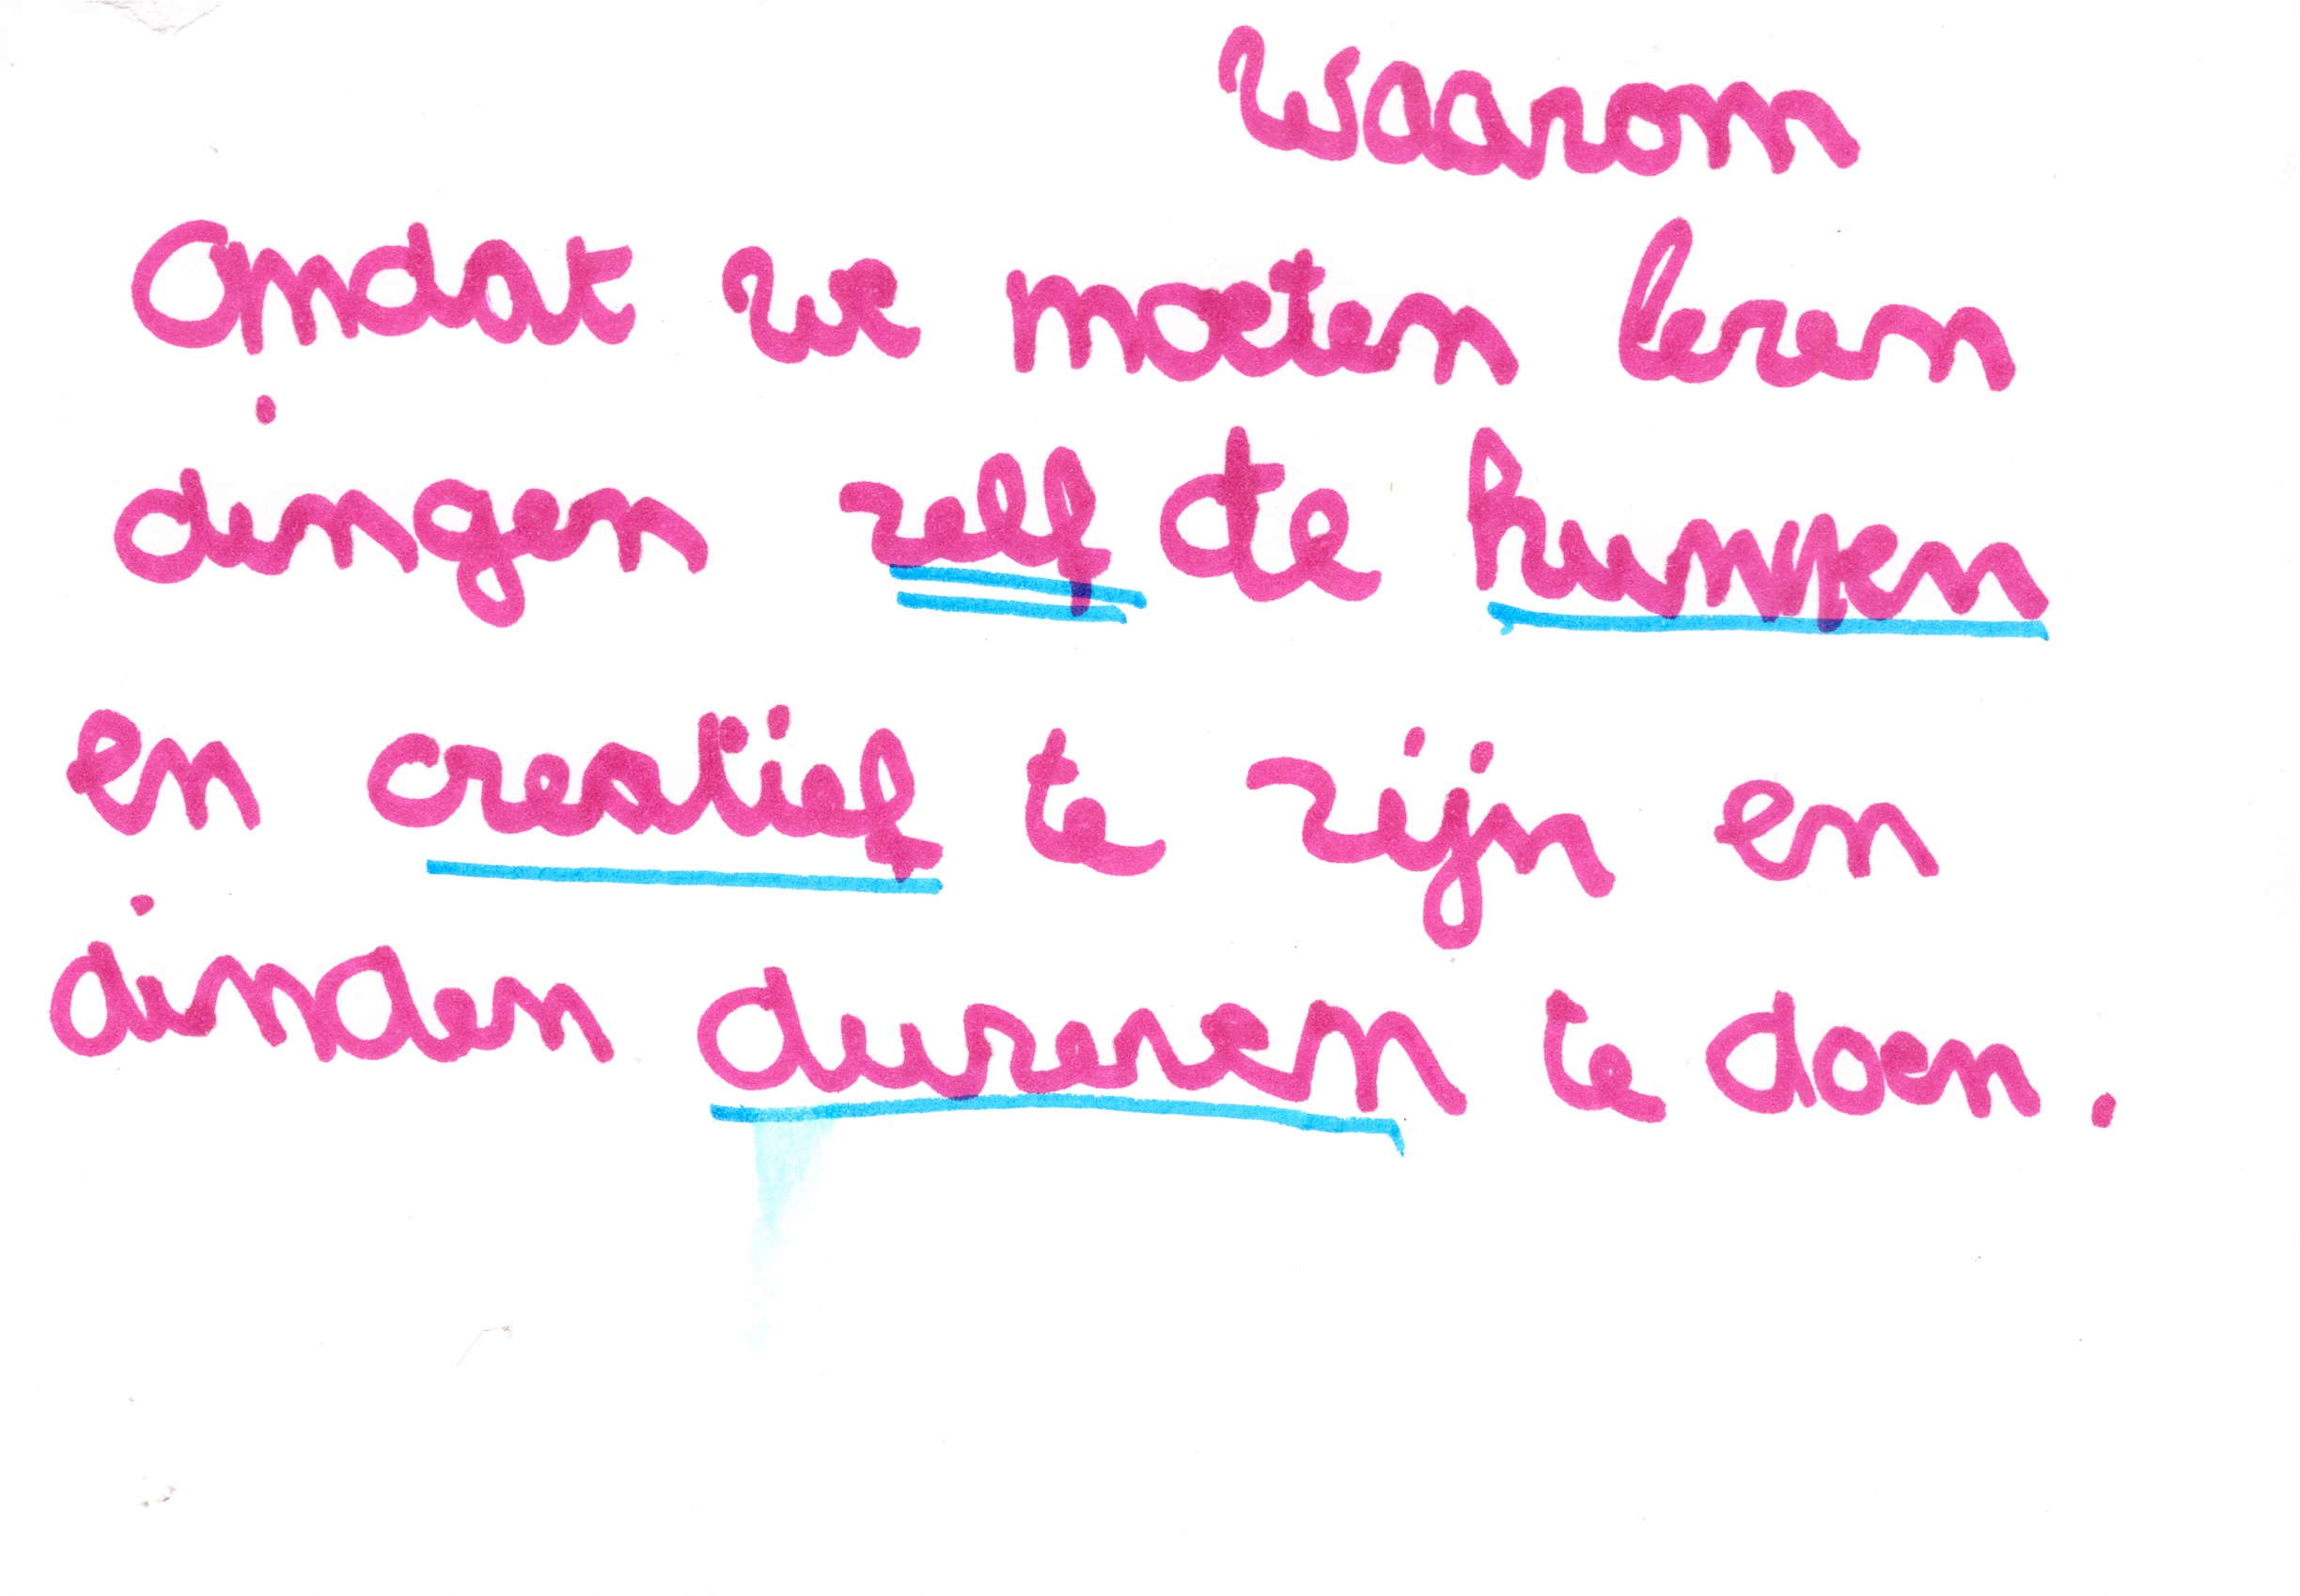 waarom
Omdat we moeten leren
dingen zelf te kunnen
en creatief te zijn en
dinden te doen.